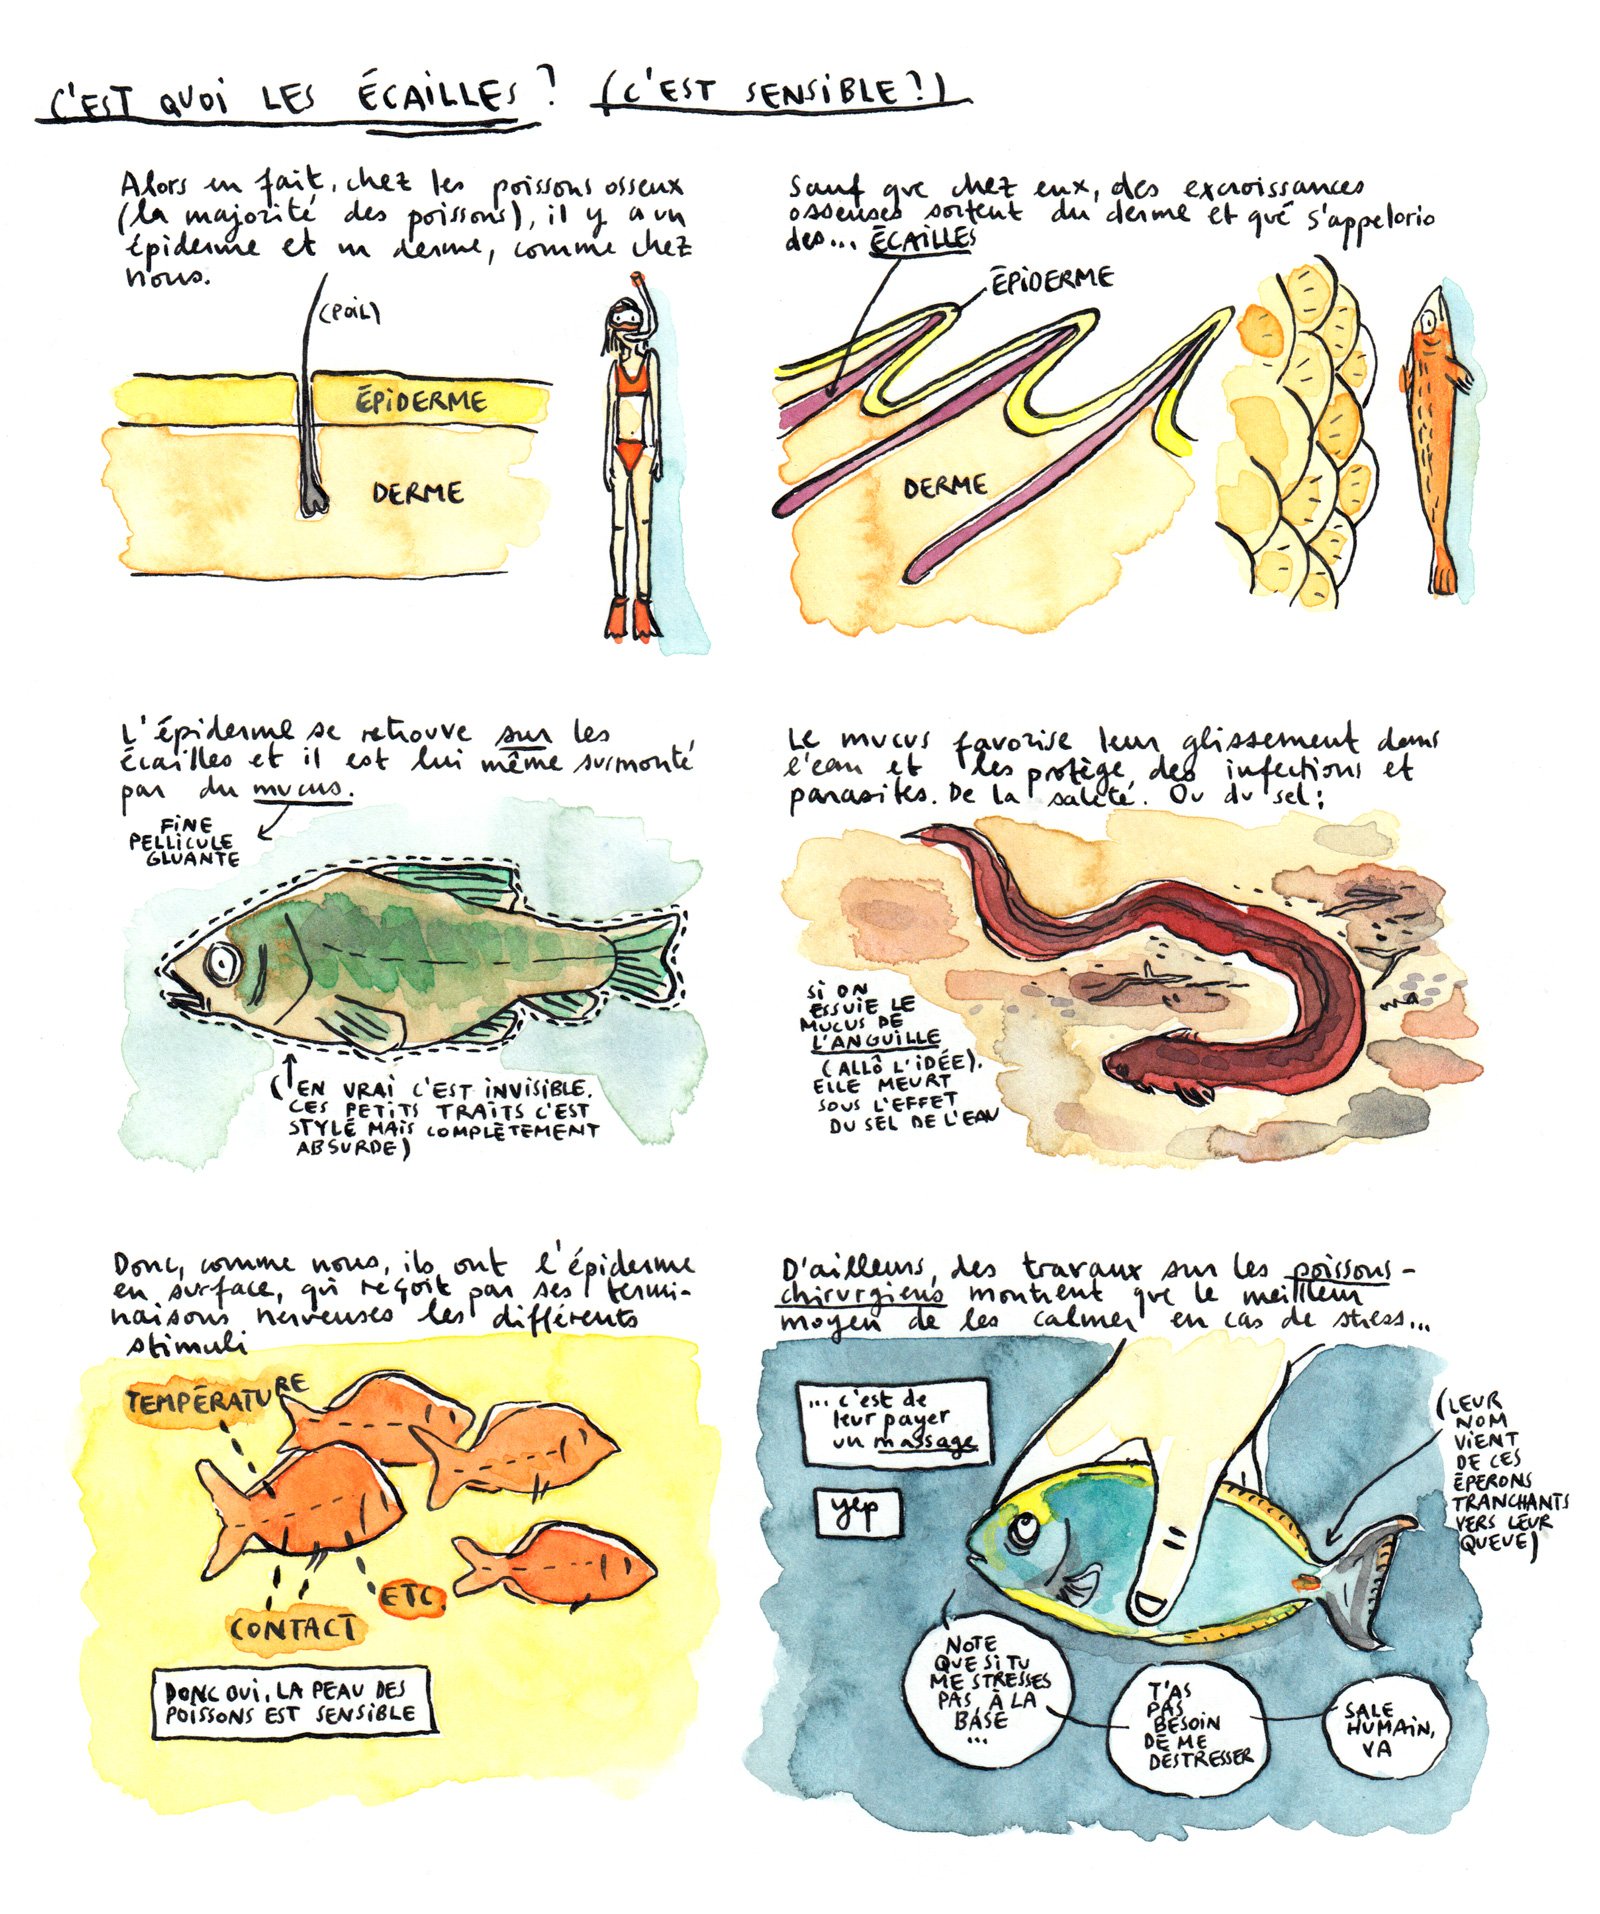 C'EST QUOI LES ÉCAILLES ? (C'EST SENSIBLE ?)
Alors en fait, chez les poissons osseux
(la majorité des poissons), il y a un
épiderme et un derme, comme chez
nous.
(POIL)
ÉPIDERME
DERME
Sauf que chez eux, des excroissances
osseuses sortent du derme et qué s'appelorio
des... ÉCAILLES
ÉPIDERME
DERME
L'épiderme se retrouve sur les
écailles et il est lui même surmonté
par du mucus.
FINE
PELLICULE
GLUANTE
(EN VRAI C'EST INVISIBLE.
CES PETITS TRAITS C'EST
STYLÉ MAIS COMPLÈTEMENT
ABSURDE)
Le mucus favorise leur glissement dans
l'eau et les protège des infections et
parasites. De la saleté. Ou du sel :
SI ON
ESSUIE LE
MUCUS DE
L'ANGUILLE
(ALLÔ L'IDÉE).
ELLE MEURT
SOUS L'EFFET
DU SEL DE L'EAU
Donc, comme nous, ils ont l'épiderme
en surface, qui reçoit par ses termi-
naisons nerveuses les différents
stimuli
TEMPÉRATURE
ETC.
CONTACT
DONC OUI, LA PEAU DES
POISSONS EST SENSIBLE
D'ailleurs, des travaux sur les poissons-
chirurgiens montrent que le meilleur
moyen de les calmer en cas de stress...
... c'est de
leur payer
un massage
yep
(LEUR
NOM
VIENT
DE CES
ÉPERONS
TRANCHANTS
VERS LEUR
QUEUE)
NOTE
QUE SI TU
ME STRESSES
PAS, À LA
BASE
...
T'AS
PAS
BESOIN
DE ME
DESTRESSER
SALE
HUMAIN,
VA